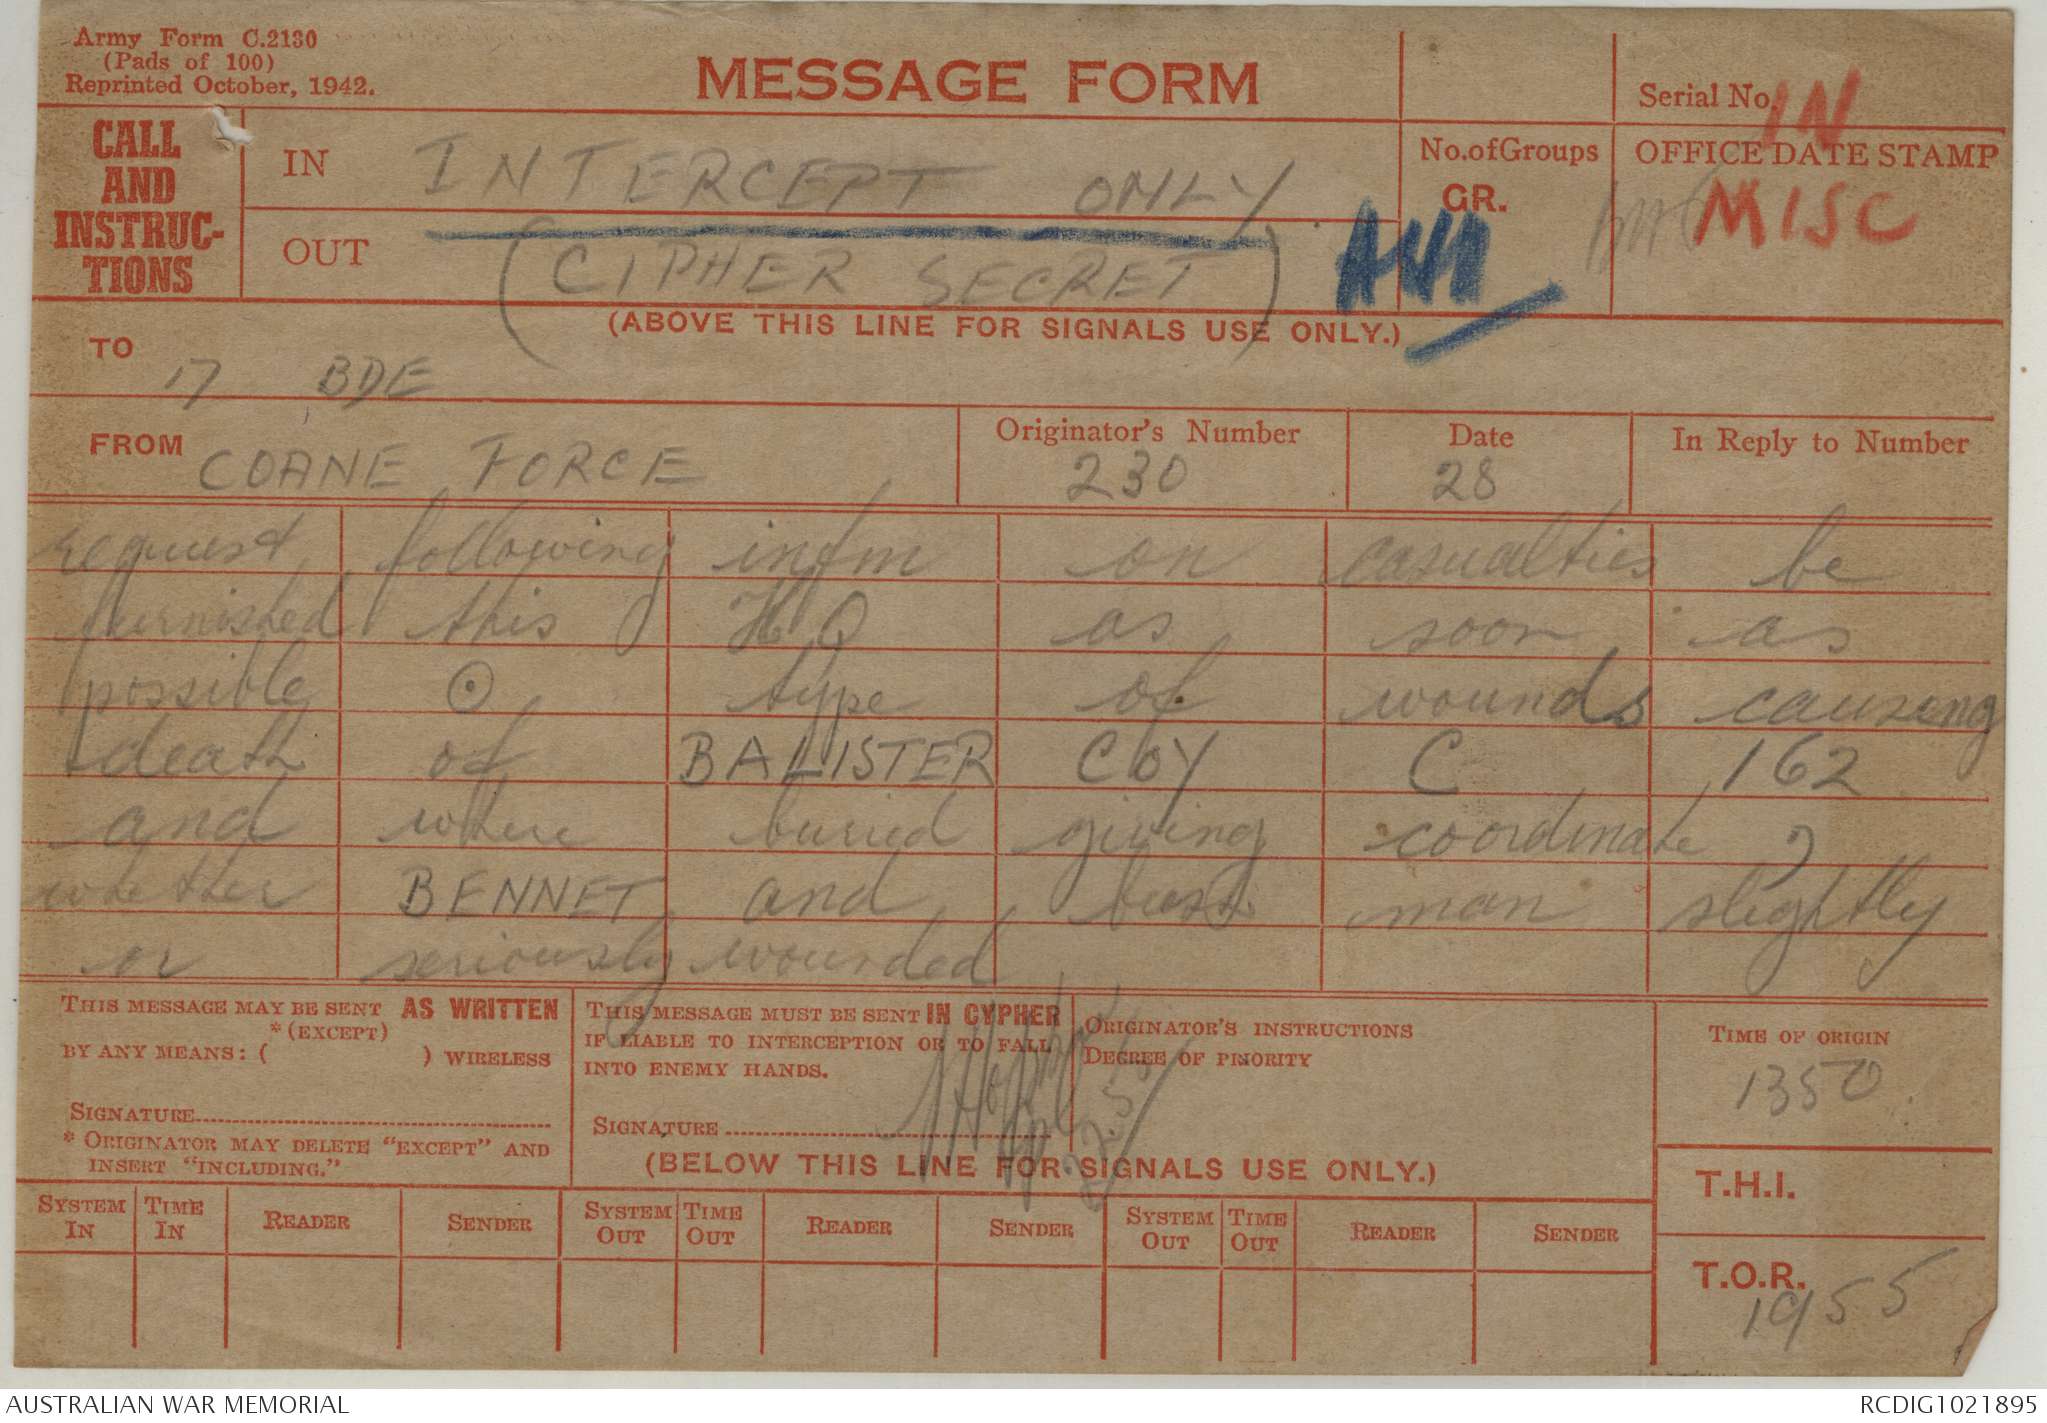 Army Form C.2130
(Pads of 100)
Reprinted October, 1942.
MESSAGE FORM
Serial No. IN
CALL
AND
INSTRUC-
TIONS
IN INTERCEPT ONLY
OUT (CIPHER SECRET)
No.ofGroups
GR.
OFFICE DATE STAMP
MISC
(ABOVE THIS LINE FOR SIGNALS USE ONLY.)
TO
17 BDE
FROM COANE FORCE
Originator's Number
230
Date
28
In Reply to Number
request following infm on casualties be
furnished this HQ as soon as
possible ⊙ type of wounds causing
death of BALISTER COY C 162
and where buried giving coordinate ,
whether BENNET and man slightly
or seriously wounded
THIS MESSAGE MAY BE SENT AS WRITTEN
*(EXCEPT)
BY ANY MEANS: ( ) WIRELESS
SIGNATURE
* ORIGINATOR MAY DELETE "EXCEPT" AND
INSERT "INCLUDING."
THIS MESSAGE MUST BE SENT IN CYPHER
IF LIABLE TO INTERCEPTION OR TO FALL
INTO ENEMY HANDS.
SIGNATURE
ORIGINATOR'S INSTRUCTIONS
DEGREE OF PRIORITY
TIME OF ORIGIN
1350
(BELOW THIS LINE FOR SIGNALS USE ONLY.)
T.H.I.
SYSTEM IN TIME IN READER SENDER SYSTEM OUT TIME OUT READER SENDER SYSTEM OUT TIME OUT READER SENDER
T.O.R.
1955
AUSTRALIAN WAR MEMORIAL
RCDIG1021895